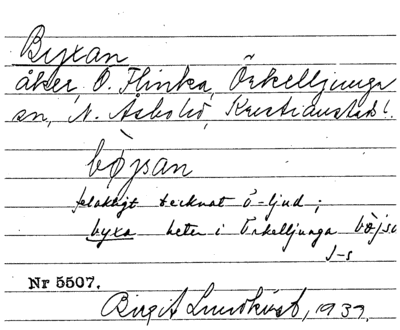 Byxan
åker, Ö. Flinka, Örkelljunga
sn, N. Åsbo hd, Kristianstads l.
bøjsan
felaktigt tecknat ö-ljud;
byxa heter i Örkelljunga
J-s
Nr 5507.
Birgit Lundkvist, 1937.